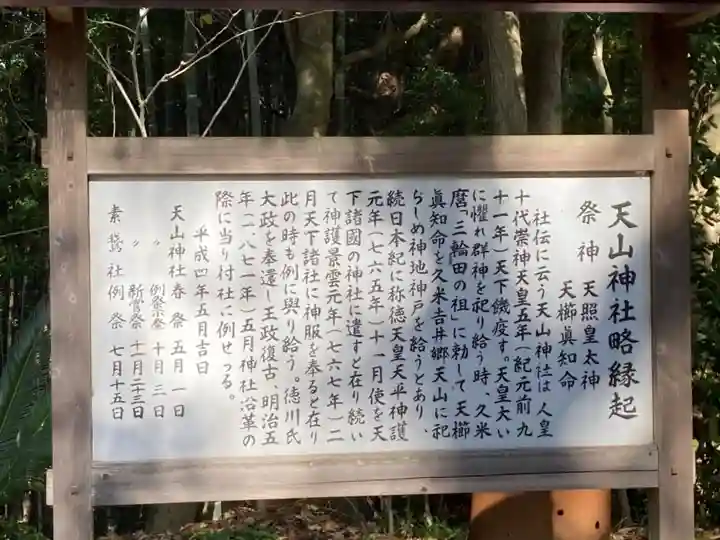 天山神社略縁起
祭神 天照皇太神
天櫛眞知命
社伝に云う天山神社は人皇
十代崇神天皇五年(紀元前九
十一年)天下饑疫す。天皇大い
に懼れ群神を祀り給う時、久米
麿「三輪田の祖」に勅して天櫛
眞知命を久米吉井郷天山に祀
らしめ神地神戸を給うとあり、
続日本紀に称徳天皇天平神護
元年(七六五年)十一月使を天
下諸國の神社に遣すと在り続い
て神護景雲元年(七六七年)二
月天下諸社に神服を奉ると在り
此の時も例に與り給う。徳川氏
大政を奉還し王政復古、明治五
年(一八七一年)五月神社沿革の
際に当り村社に例せつる。
平成四年五月吉日
天山神社春祭 五月一日
〃 例祭 十月三日
〃 新嘗祭 十一月二十三日
素鵞社例祭 七月十五日